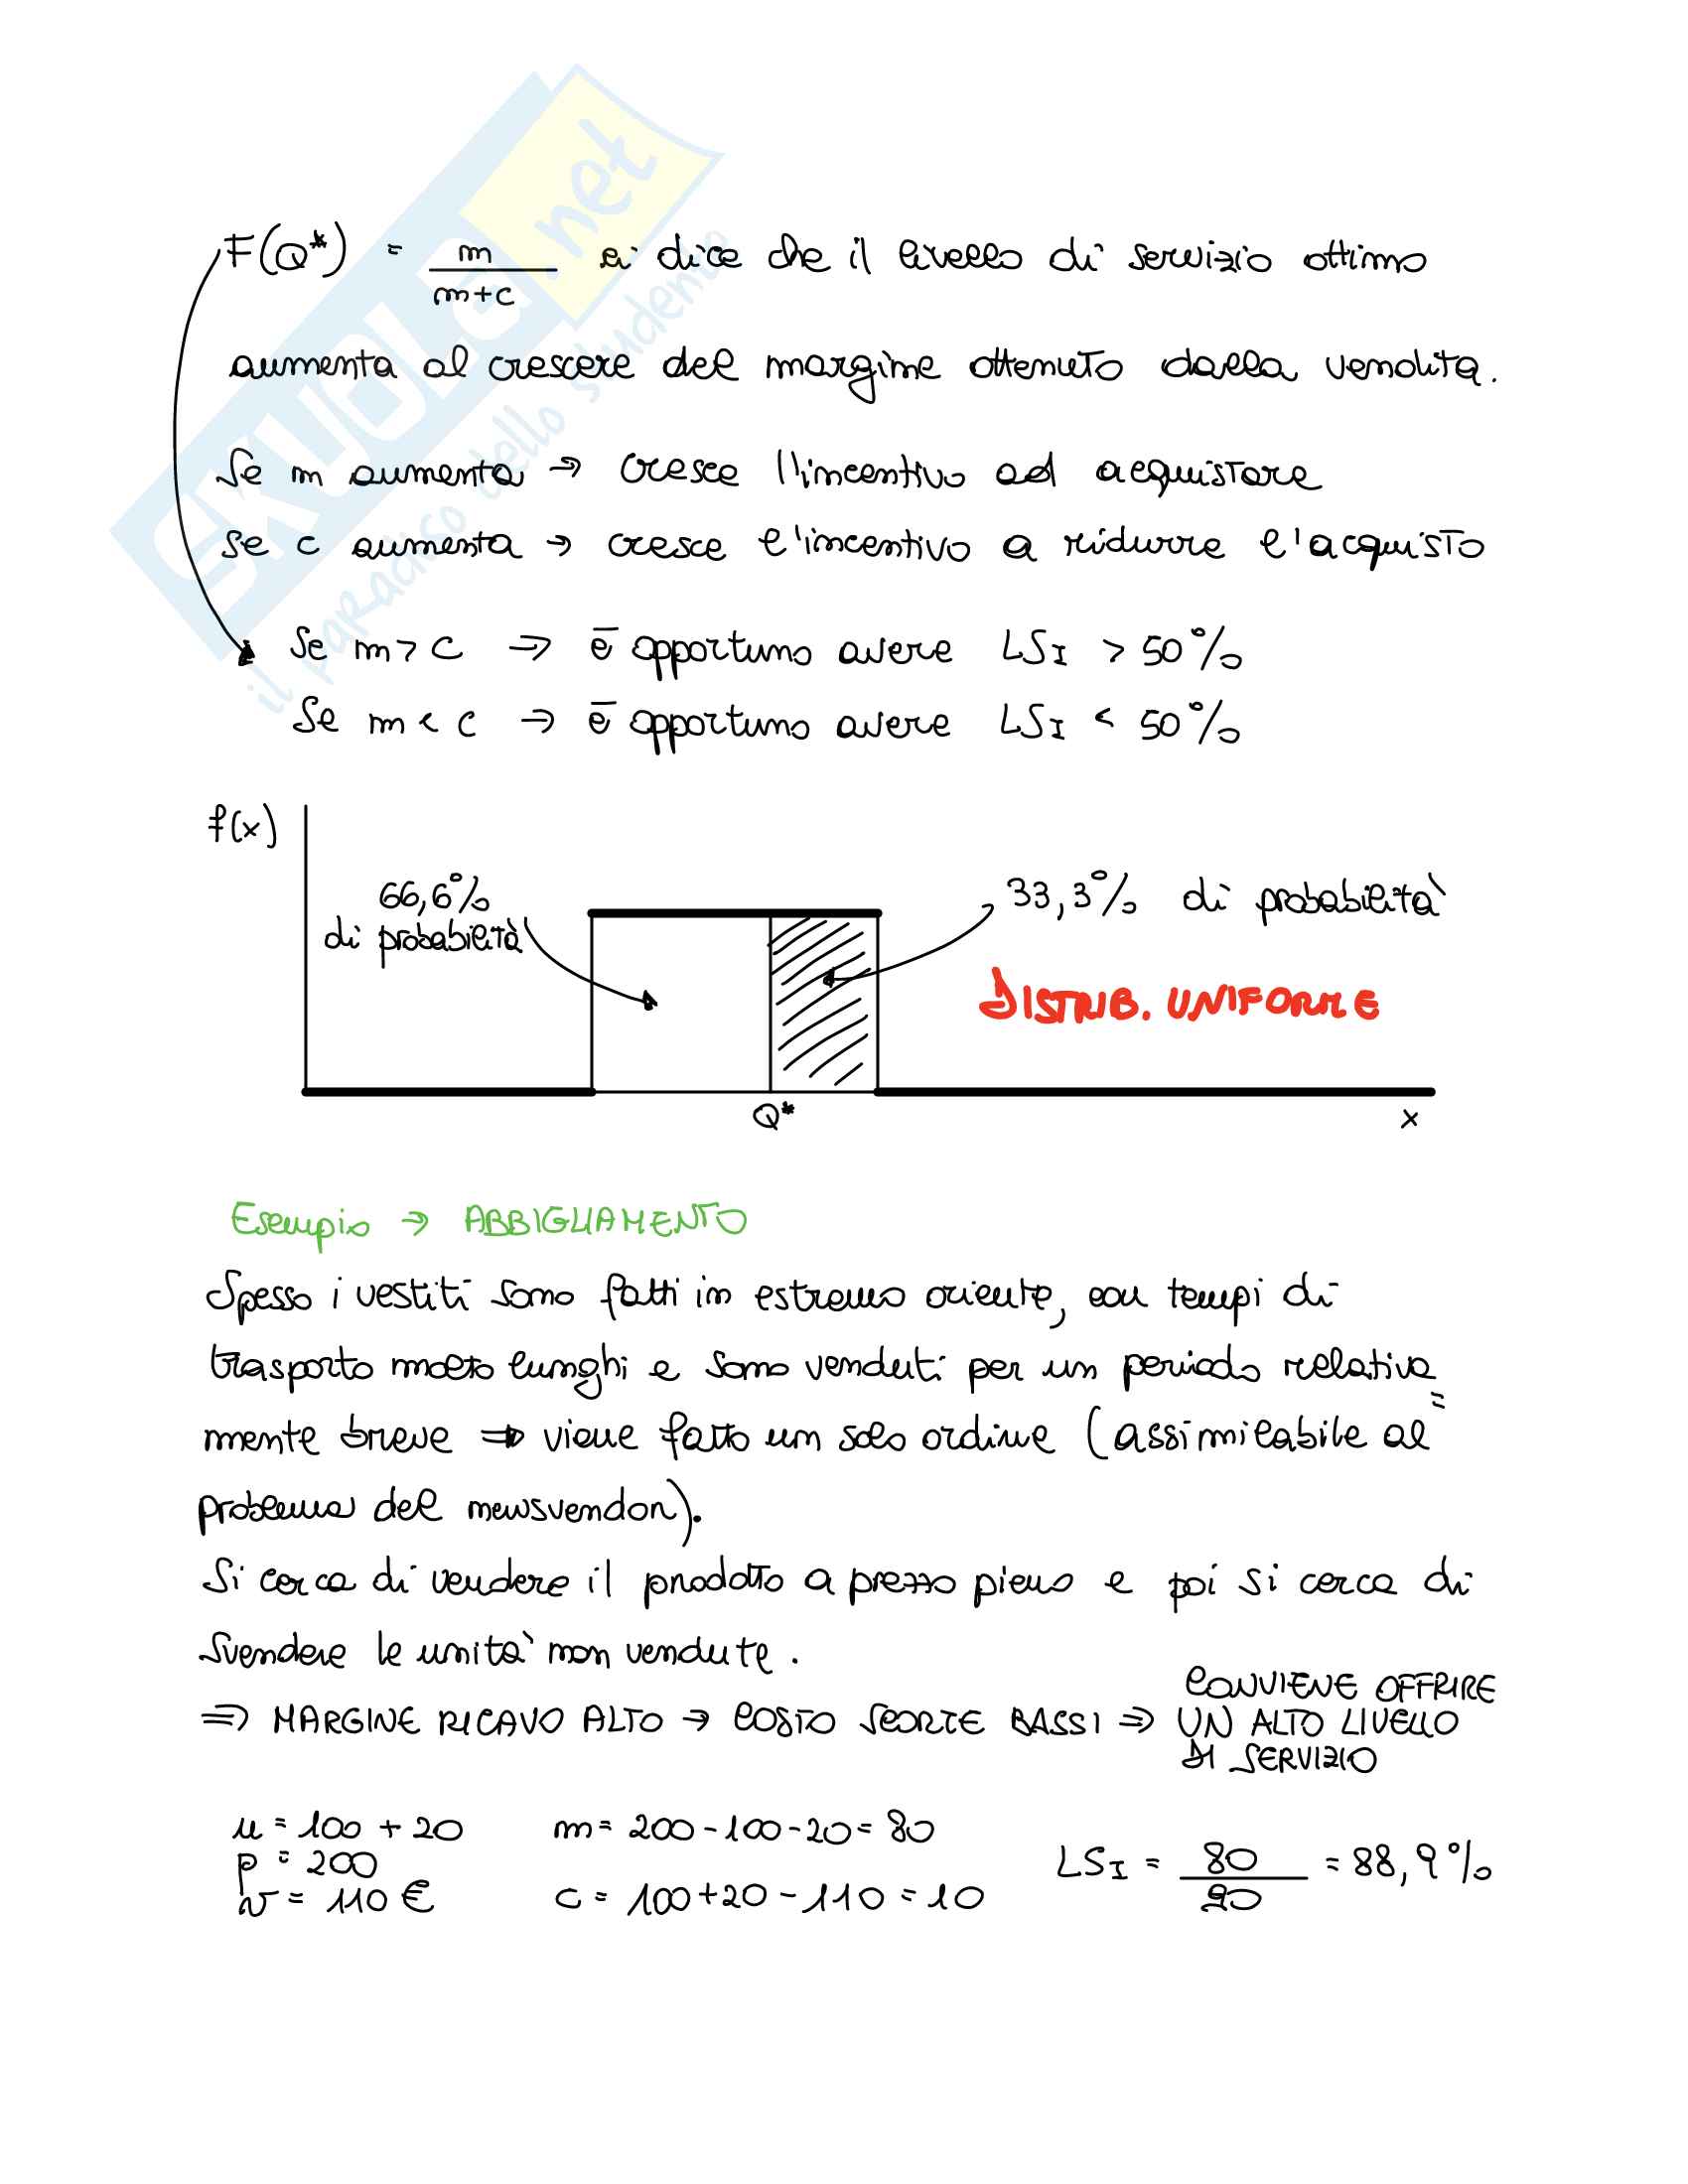 SKUOLA.net
il paradiso dello studente
F(Q*) = m/(m+c) ci dice che il livello di servizio ottimo
aumenta al crescere del margine ottenuto dalla vendita.
Se m aumenta → cresce l'incentivo ad acquistare
Se c aumenta → cresce l'incentivo a ridurre l'acquisto
Se m > c ⇒ è opportuno avere LSI > 50%
Se m < c ⇒ è opportuno avere LSI < 50%
f(x)
66,6%
di probabilità
33,3% di probabilità
DISTRIB. UNIFORME
Q*
x
Esempio → ABBIGLIAMENTO
Spesso i vestiti sono fatti in estremo oriente, con tempi di
trasporto molto lunghi e sono venduti per un periodo relativa=
mente breve ⇒ viene fatto un solo ordine (assimilabile al
problema del newsvendor).
Si cerca di vendere il prodotto a prezzo pieno e poi si cerca di
svendere le unità non vendute.
⇒ MARGINE RICAVO ALTO → COSTO SCORTE BASSI ⇒ CONVIENE OFFRIRE
UN ALTO LIVELLO
DI SERVIZIO
u = 100 + 20
p = 200
v = 110 €
m = 200 - 100 - 20 = 80
c = 100 + 20 - 110 = 10
LSI = 80/90 = 88,9%